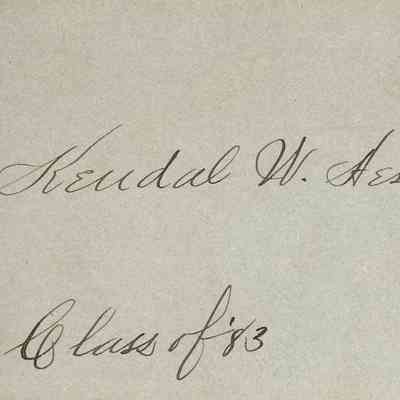 Kendal W. Hes
Class of '83